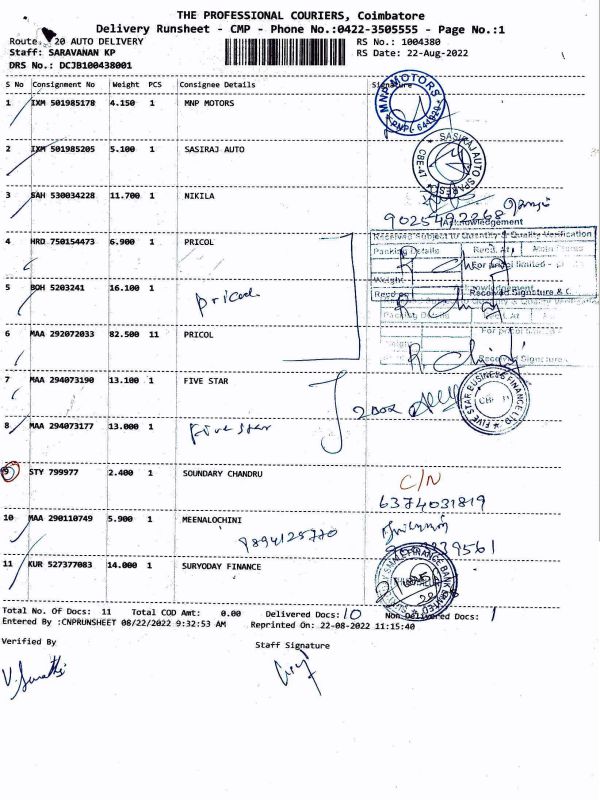 THE PROFESSIONAL COURIERS, Coimbatore
Delivery Runsheet - CMP - Phone No.:0422-3505555 - Page No.:1
Route: 20 AUTO DELIVERY RS No.: 1004380
Staff: SARAVANAN KP RS Date: 22-Aug-2022
DRS No.: DCJB100438001
S No Consignment No Weight PCS Consignee Details Signature
1 IXM 501985178 4.150 1 MNP MOTORS
MNP MOTORS
2 IXM 501985205 5.100 1 SASIRAJ AUTO
SASIRAJ AUTO SPARES
CBE-41
3 SAH 530034228 11.700 1 NIKILA
Acknowledgement
Received Subject to Quantity & Quality Verification
4 HRD 750154473 6.900 1 PRICOL
Packing Details Recd. At
For pricol limited
Weight
5 BOH 5203241 16.100 1
pricol
Received Signature &
Packing Details Recd. At
6 MAA 292072033 82.500 11 PRICOL
Received Signature
7 MAA 294073190 13.100 1 FIVE STAR
2 Box
FIVE STAR BUSINESS FINANCE LTD
8 MAA 294073177 13.000 1
Five star
9 STY 799977 2.400 1 SOUNDARY CHANDRU
C/N
6374031819
10 MAA 290110749 5.900 1 MEENALOCHINI
11 KUR 527377083 14.000 1 SURYODAY FINANCE
Total No. Of Docs: 11 Total COD Amt: 0.00 Delivered Docs: 10 Non Delivered Docs: 1
Entered By :CNPRUNSHEET 08/22/2022 9:32:53 AM Reprinted On: 22-08-2022 11:15:40
Verified By Staff Signature